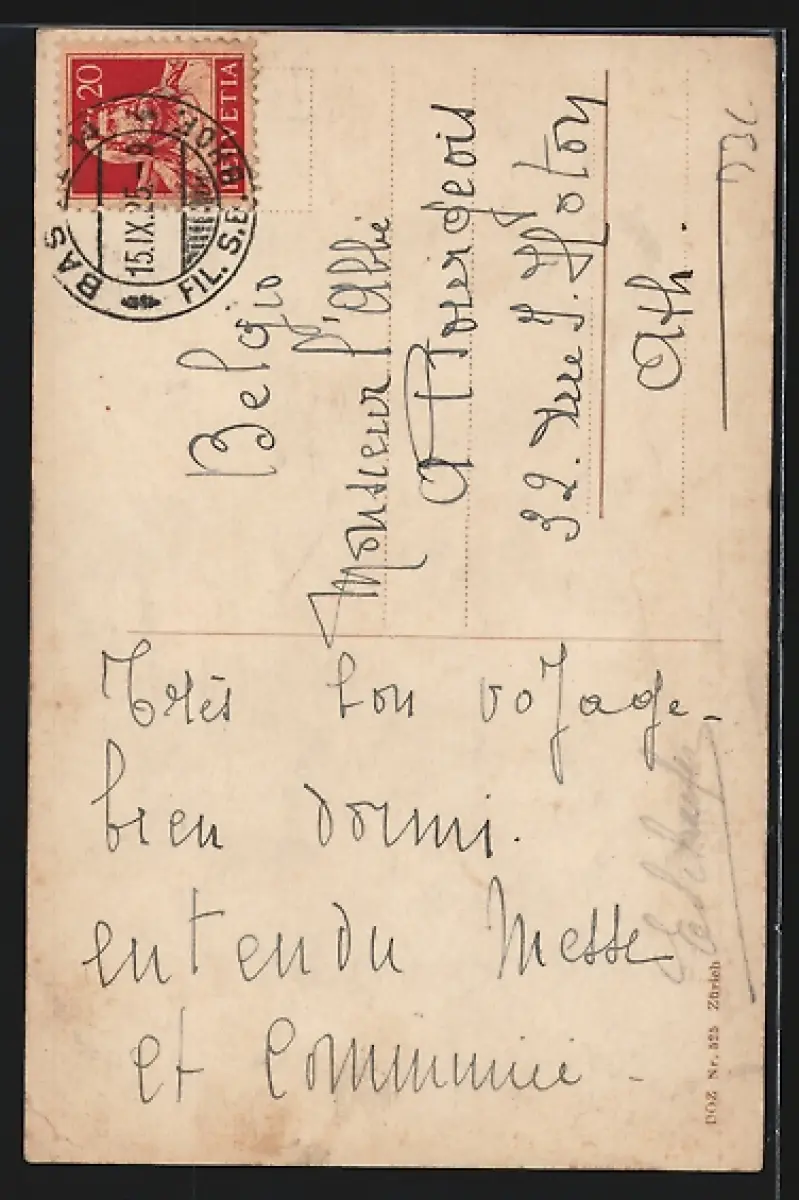 20
HELVETIA
BAS
15.IX.25.-9
FIL. S.B.BHOF.
Belgio
Monsieur l'Abbé
A Bourgeois
32. Rue J. Hoton
Ath.
Très bon voyage -
bien dormi.
entendu Messe
et Communié -
DOZ Nr. 525 Zürich